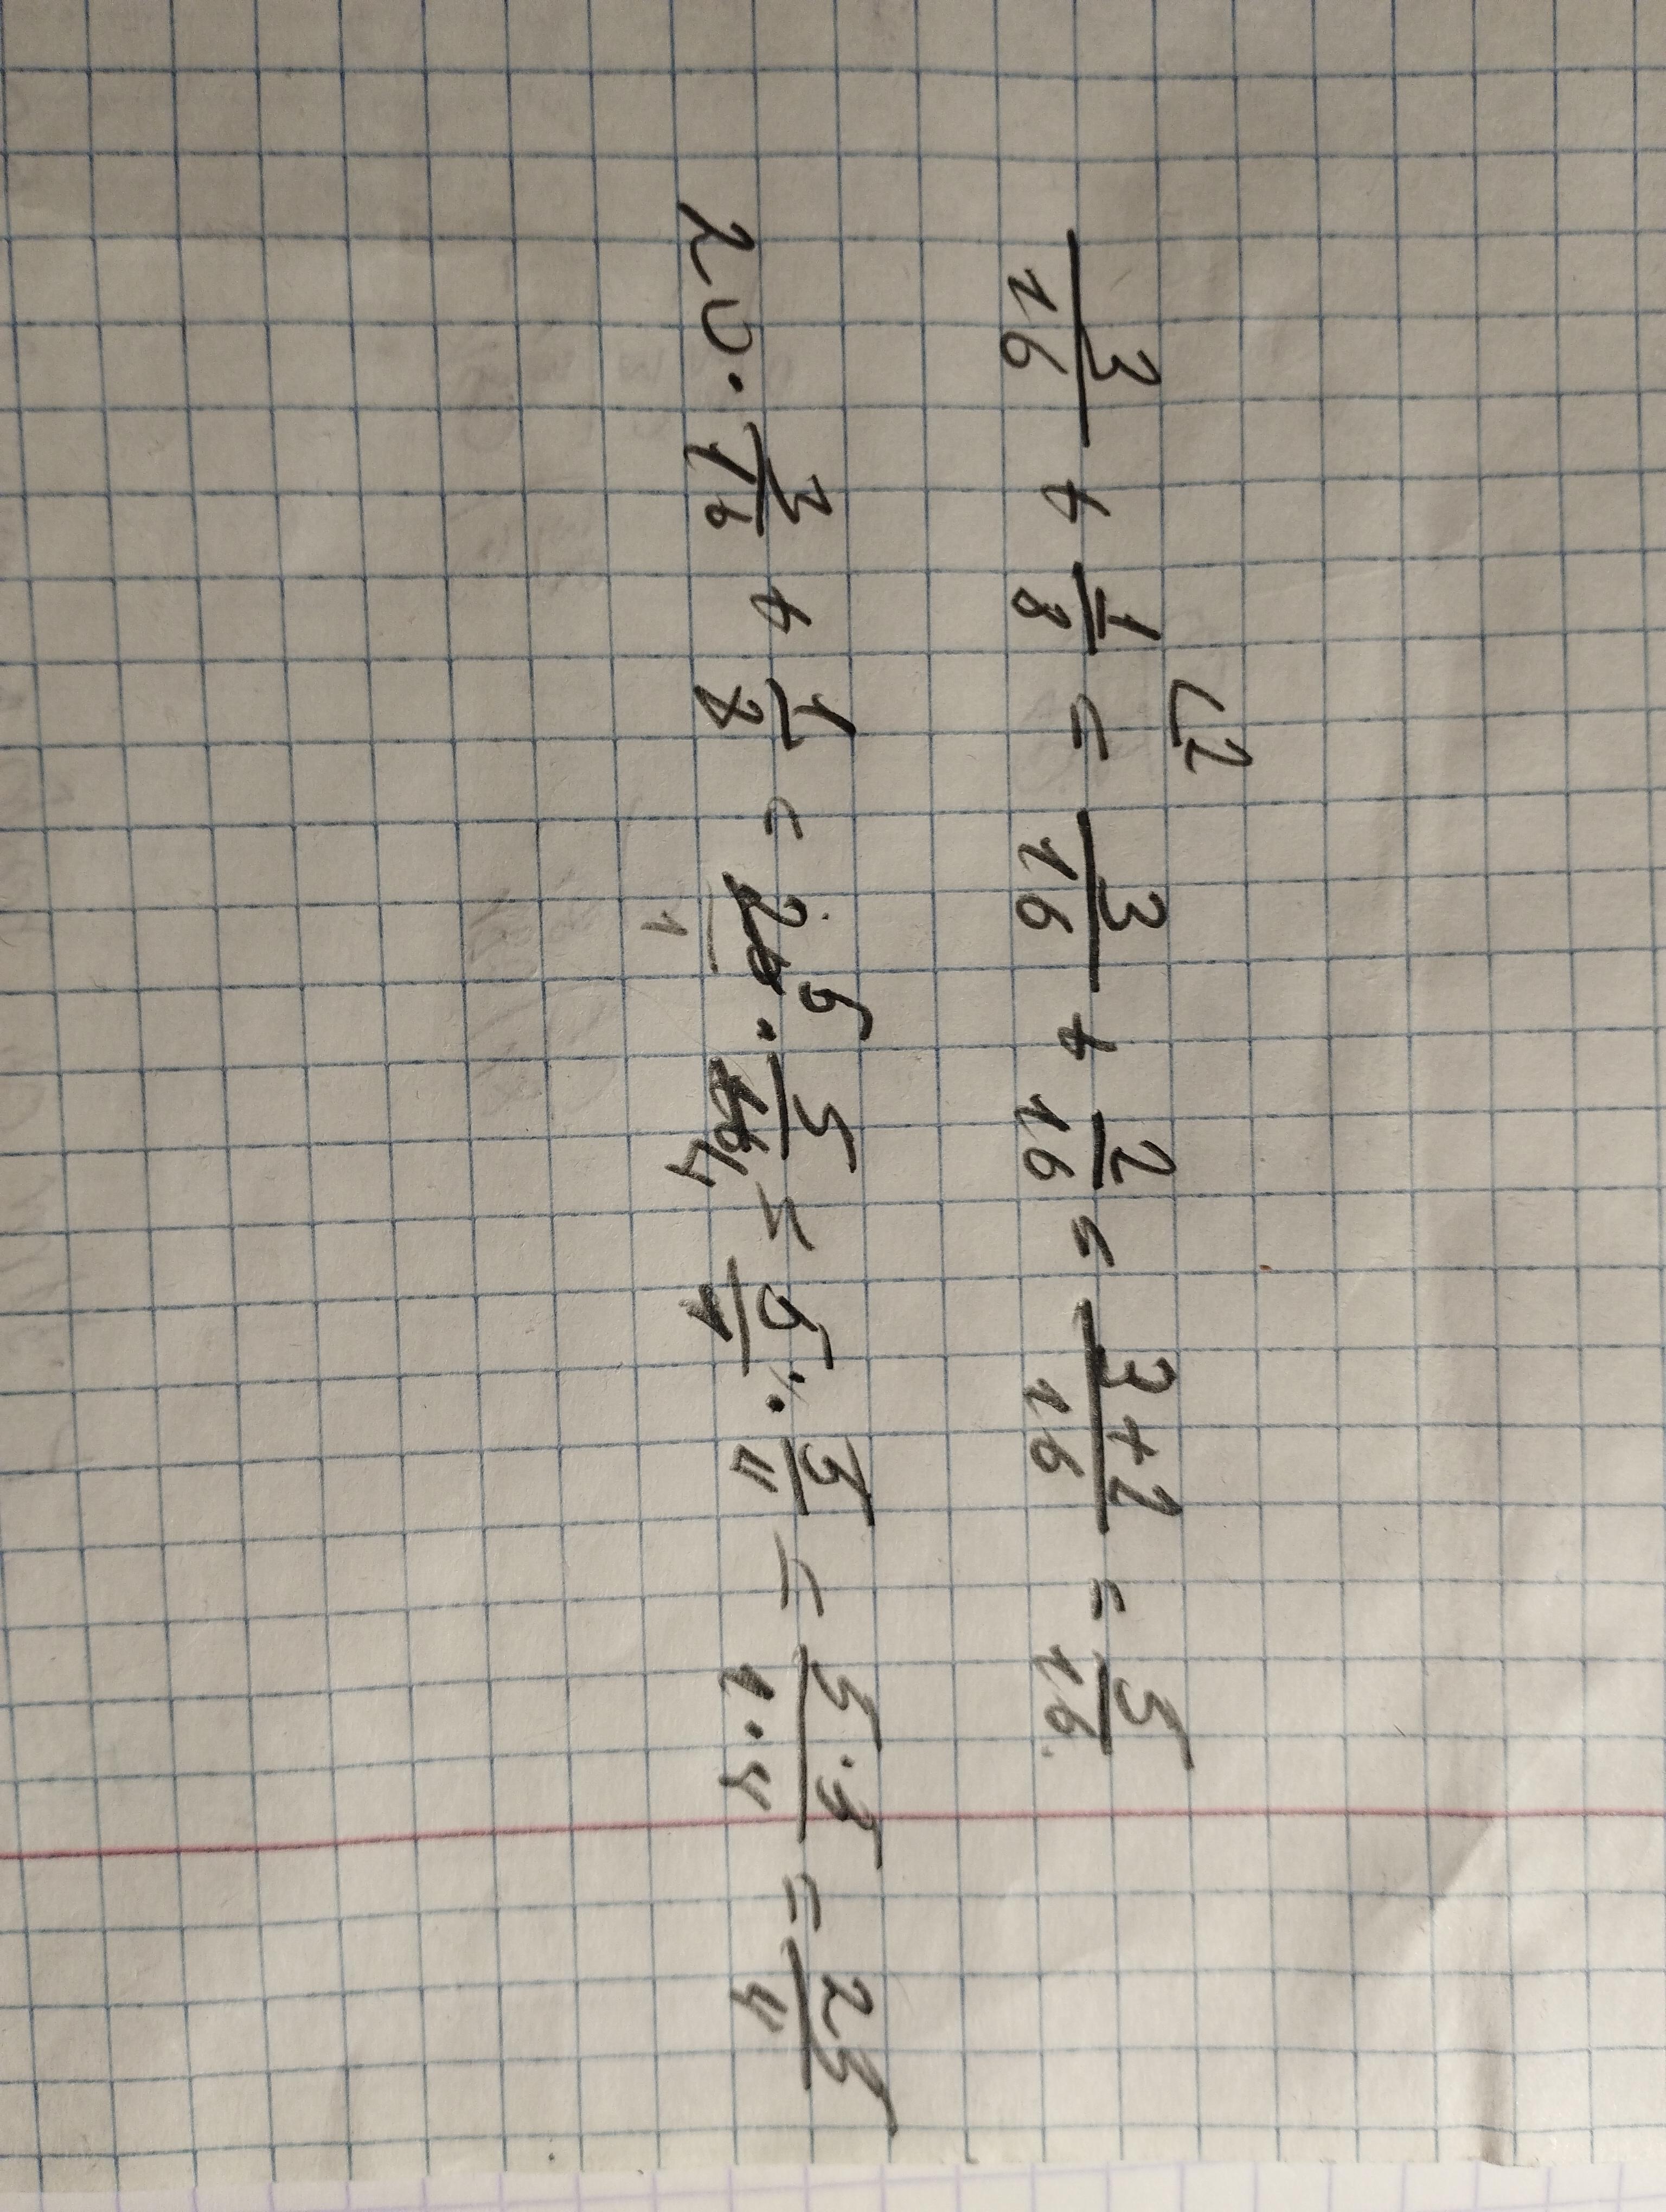 3/16 + 1/8 ⌞2 = 3/16 + 2/16 = 3+2/16 = 5/16
20 · 3/16 + 1/8 = 20 5/1 · 5/16 4 = 5/1 · 5/4 = 5·5/1·4 = 25/4